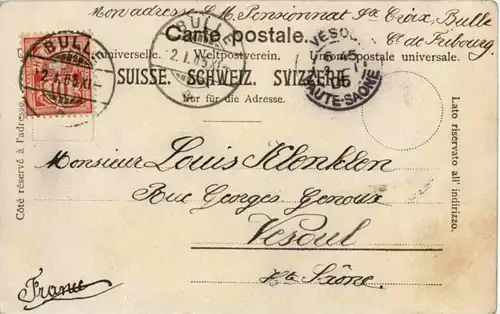 Mon adresse: L. M. Pensionnat Ste Croix, Bulle
Ct. de Fribourg.
Carte postale.
universelle. Weltpostverein. Union postale universale.
SUISSE. SCHWEIZ. SVIZZERA.
Nur für die Adresse.
BULLE
2. I. 05. XI
BULLE
2. I. 05
VESOUL
6 45
05
HAUTE-SAONE
Côté réservé à l'adresse.
Lato riservato all' indirizzo.
Monsieur Louis Klonklon
Rue Georges Genoux
Vesoul
Hte Saône.
France